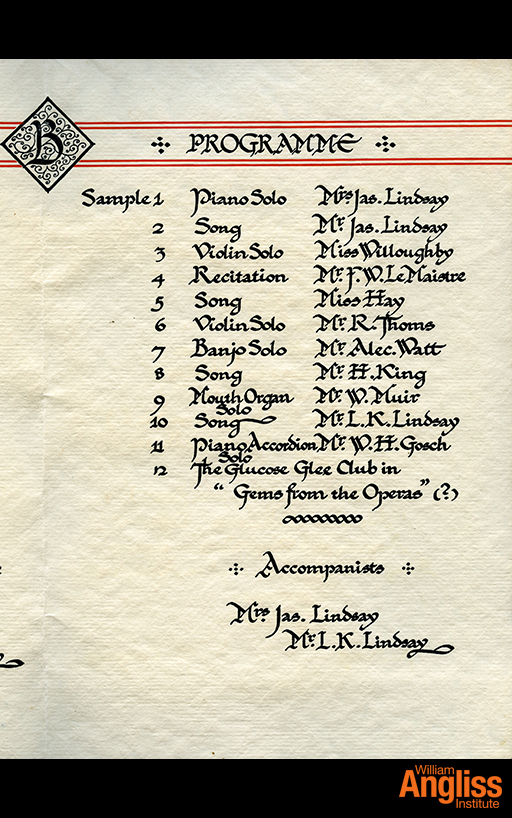 B
PROGRAMME
Sample 1 Piano Solo Mrs Jas. Lindsay
2 Song Mr. Jas. Lindsay
3 Violin Solo Miss Willoughby
4 Recitation Mr. F.W. Le Maistre
5 Song Miss Hay
6 Violin Solo Mr. R. Thoms
7 Banjo Solo Mr. Alec. Watt
8 Song Mr. H. King
9 Mouth Organ Solo Mr. W. Muir
10 Song Mr. L.K. Lindsay
11 Piano Accordion Solo Mr. W.H. Gosch
12 The Glucose Glee Club in
"Gems from the Operas" (?)
Accompanists
Mrs Jas. Lindsay
Mr. L.K. Lindsay
William
Angliss
Institute